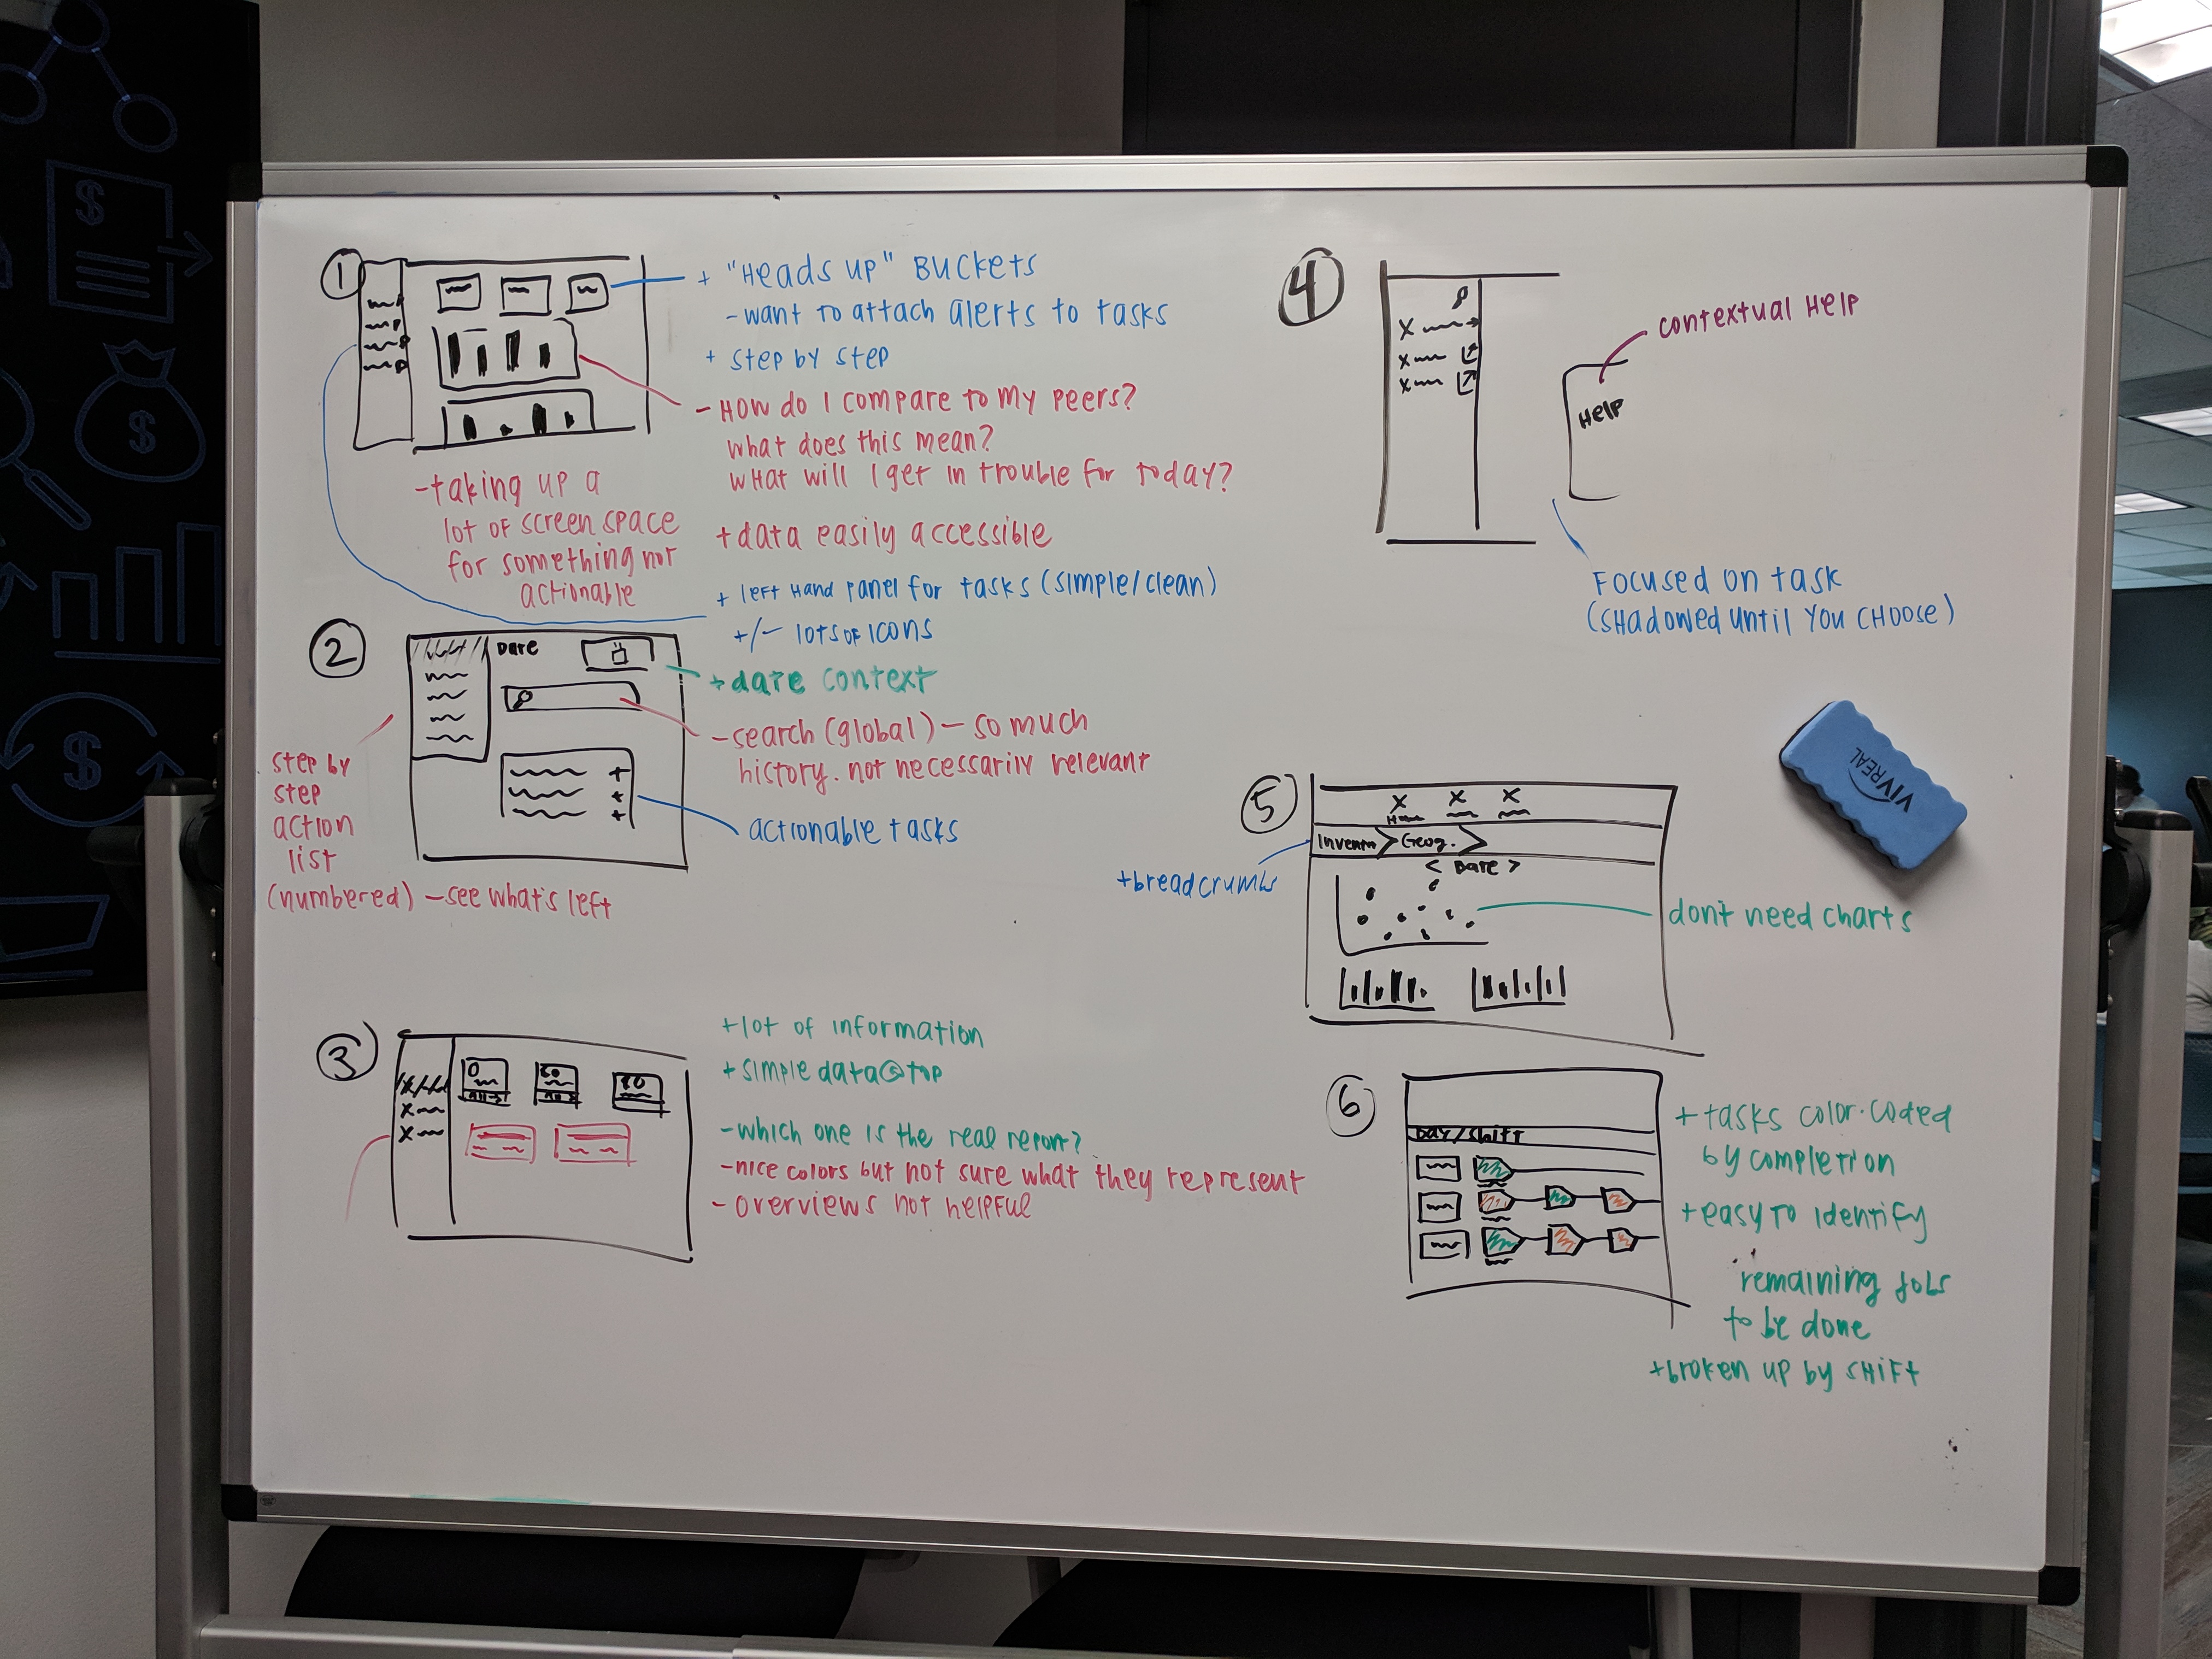 1
+ "Heads up" Buckets
- want to attach alerts to tasks
+ step by step
- How do I compare to my peers?
what does this mean?
what will I get in trouble for today?
- taking up a
lot of screen space
for something not
actionable
+ data easily accessible
+ left hand panel for tasks (simple/clean)
+/- lots of icons
2
Date
+ date context
- search (global) - so much
history. not necessarily relevant
actionable tasks
step by
step
action
list
(numbered) - see what's left
3
0
80
80
+ lot of information
+ simple data @ top
- which one is the real report?
- nice colors but not sure what they represent
- overviews not helpful
4
contextual Help
Help
Focused on task
(shadowed until you choose)
5
X X X
Inventn > Geog. >
< Date >
+ breadcrumbs
don't need charts
6
Day/Shift
+ tasks color-coded
by completion
+ easy to identify
remaining jobs
to be done
+ broken up by shift
VIVREAL
$
$
$